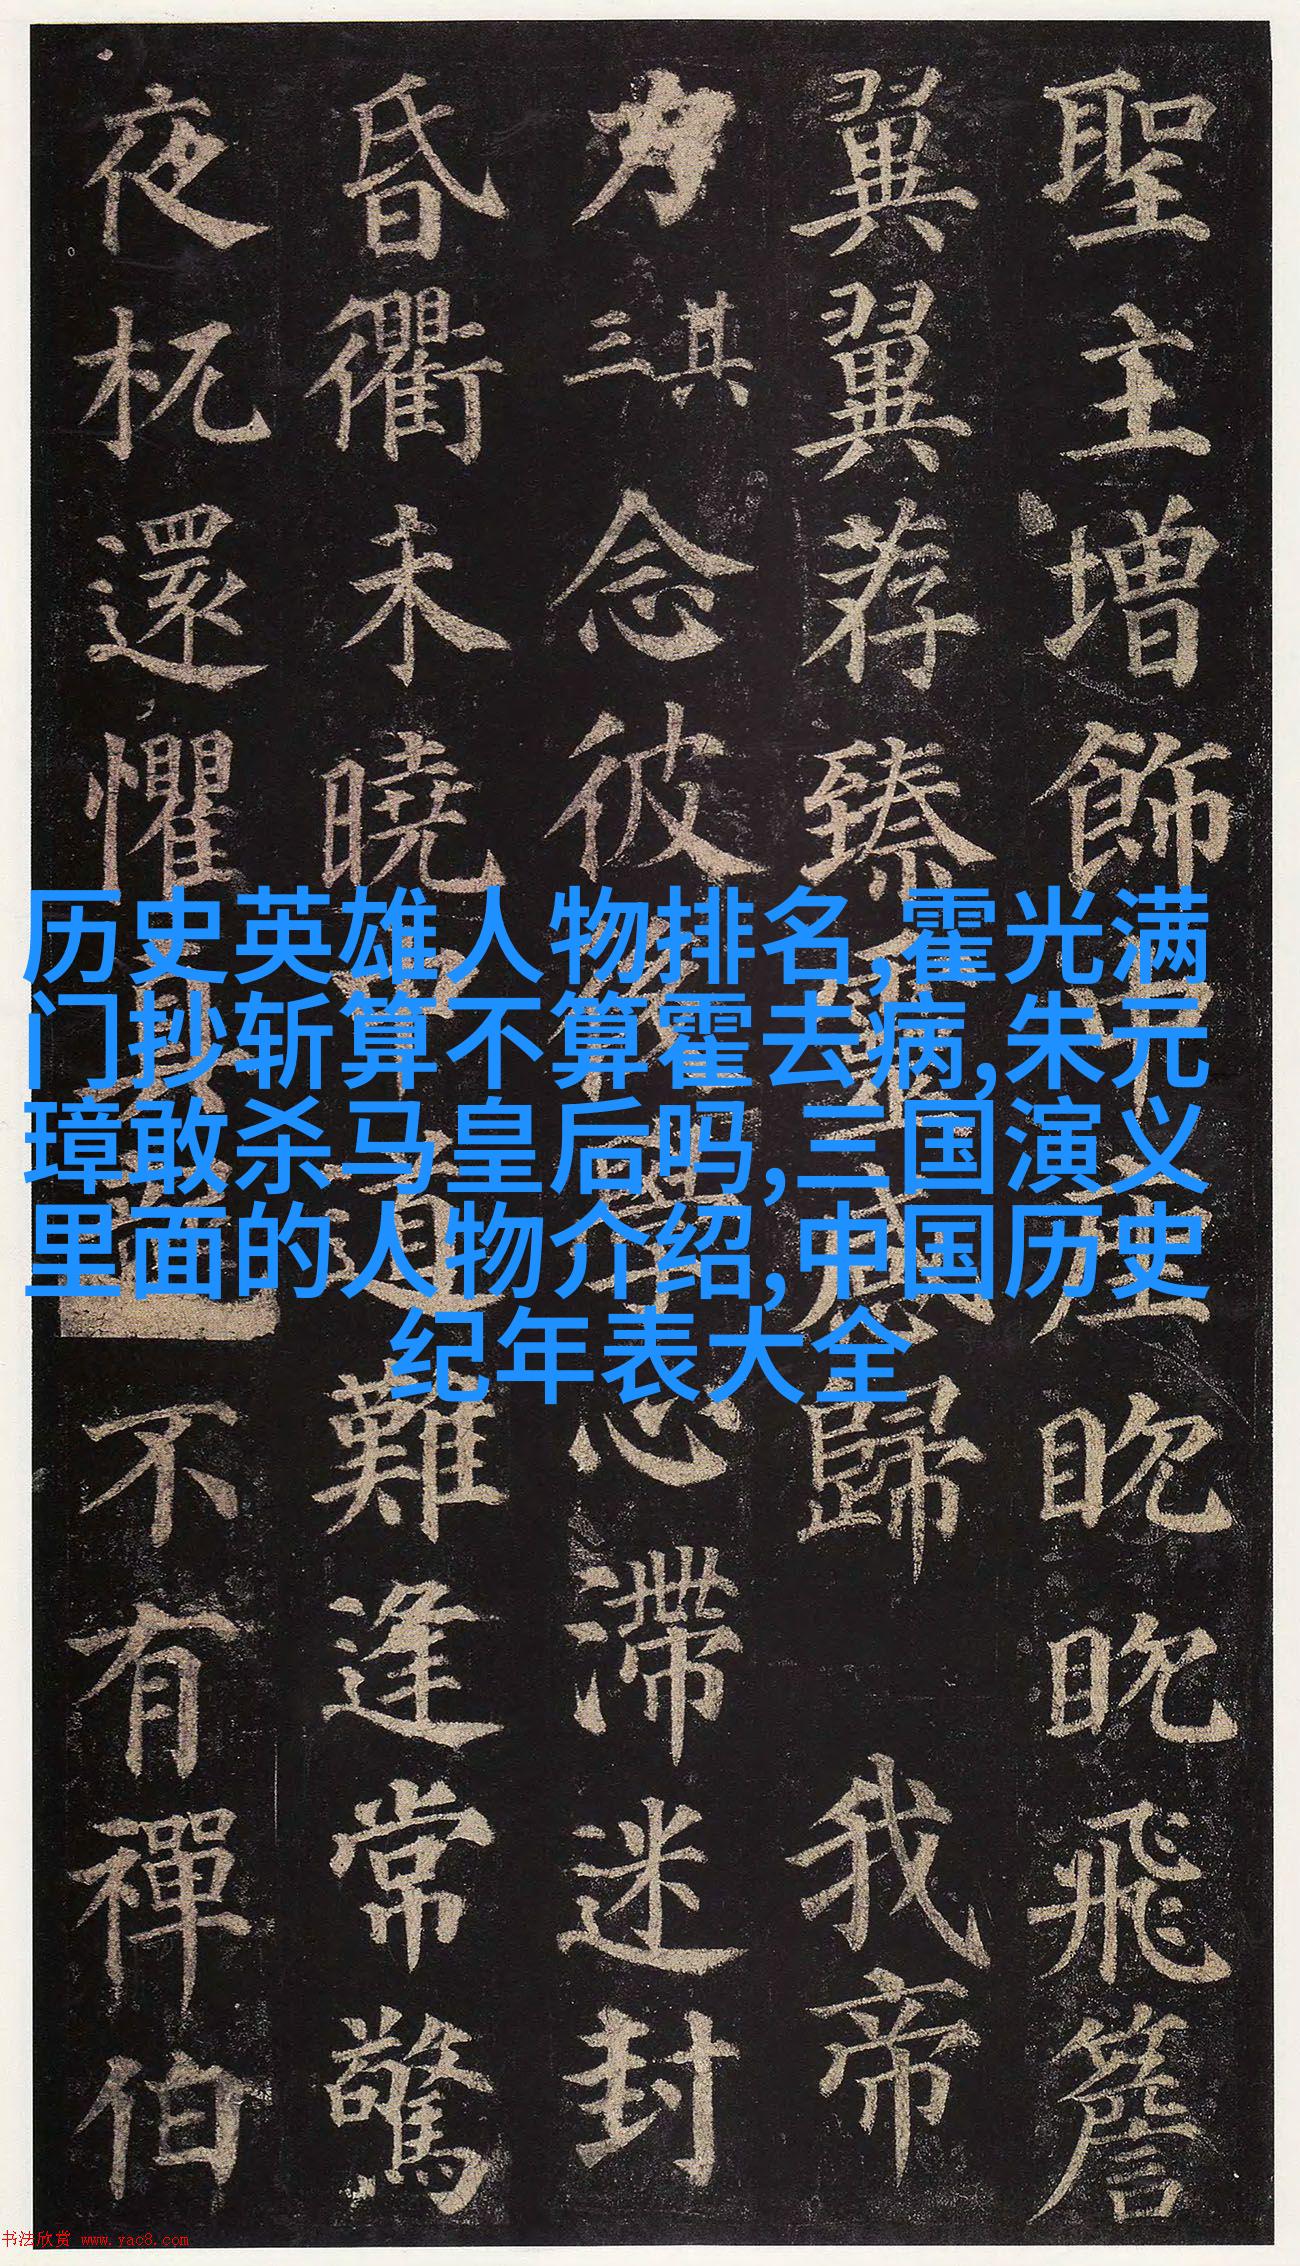 历史英雄人物排名,霍光满
门抄斩算不算霍去病,朱元
璋敢杀马皇后吗,三国演义
里面的人物介绍,中国历史
纪年表大全
聖主增飾眈眈飛簷
翼翼荐臻感歸我帝
力其三念彼心滯迷封
昏衢未曉道難逢常驚
夜杌還懼真不有禪伯
书法欣赏 www.yac8.com